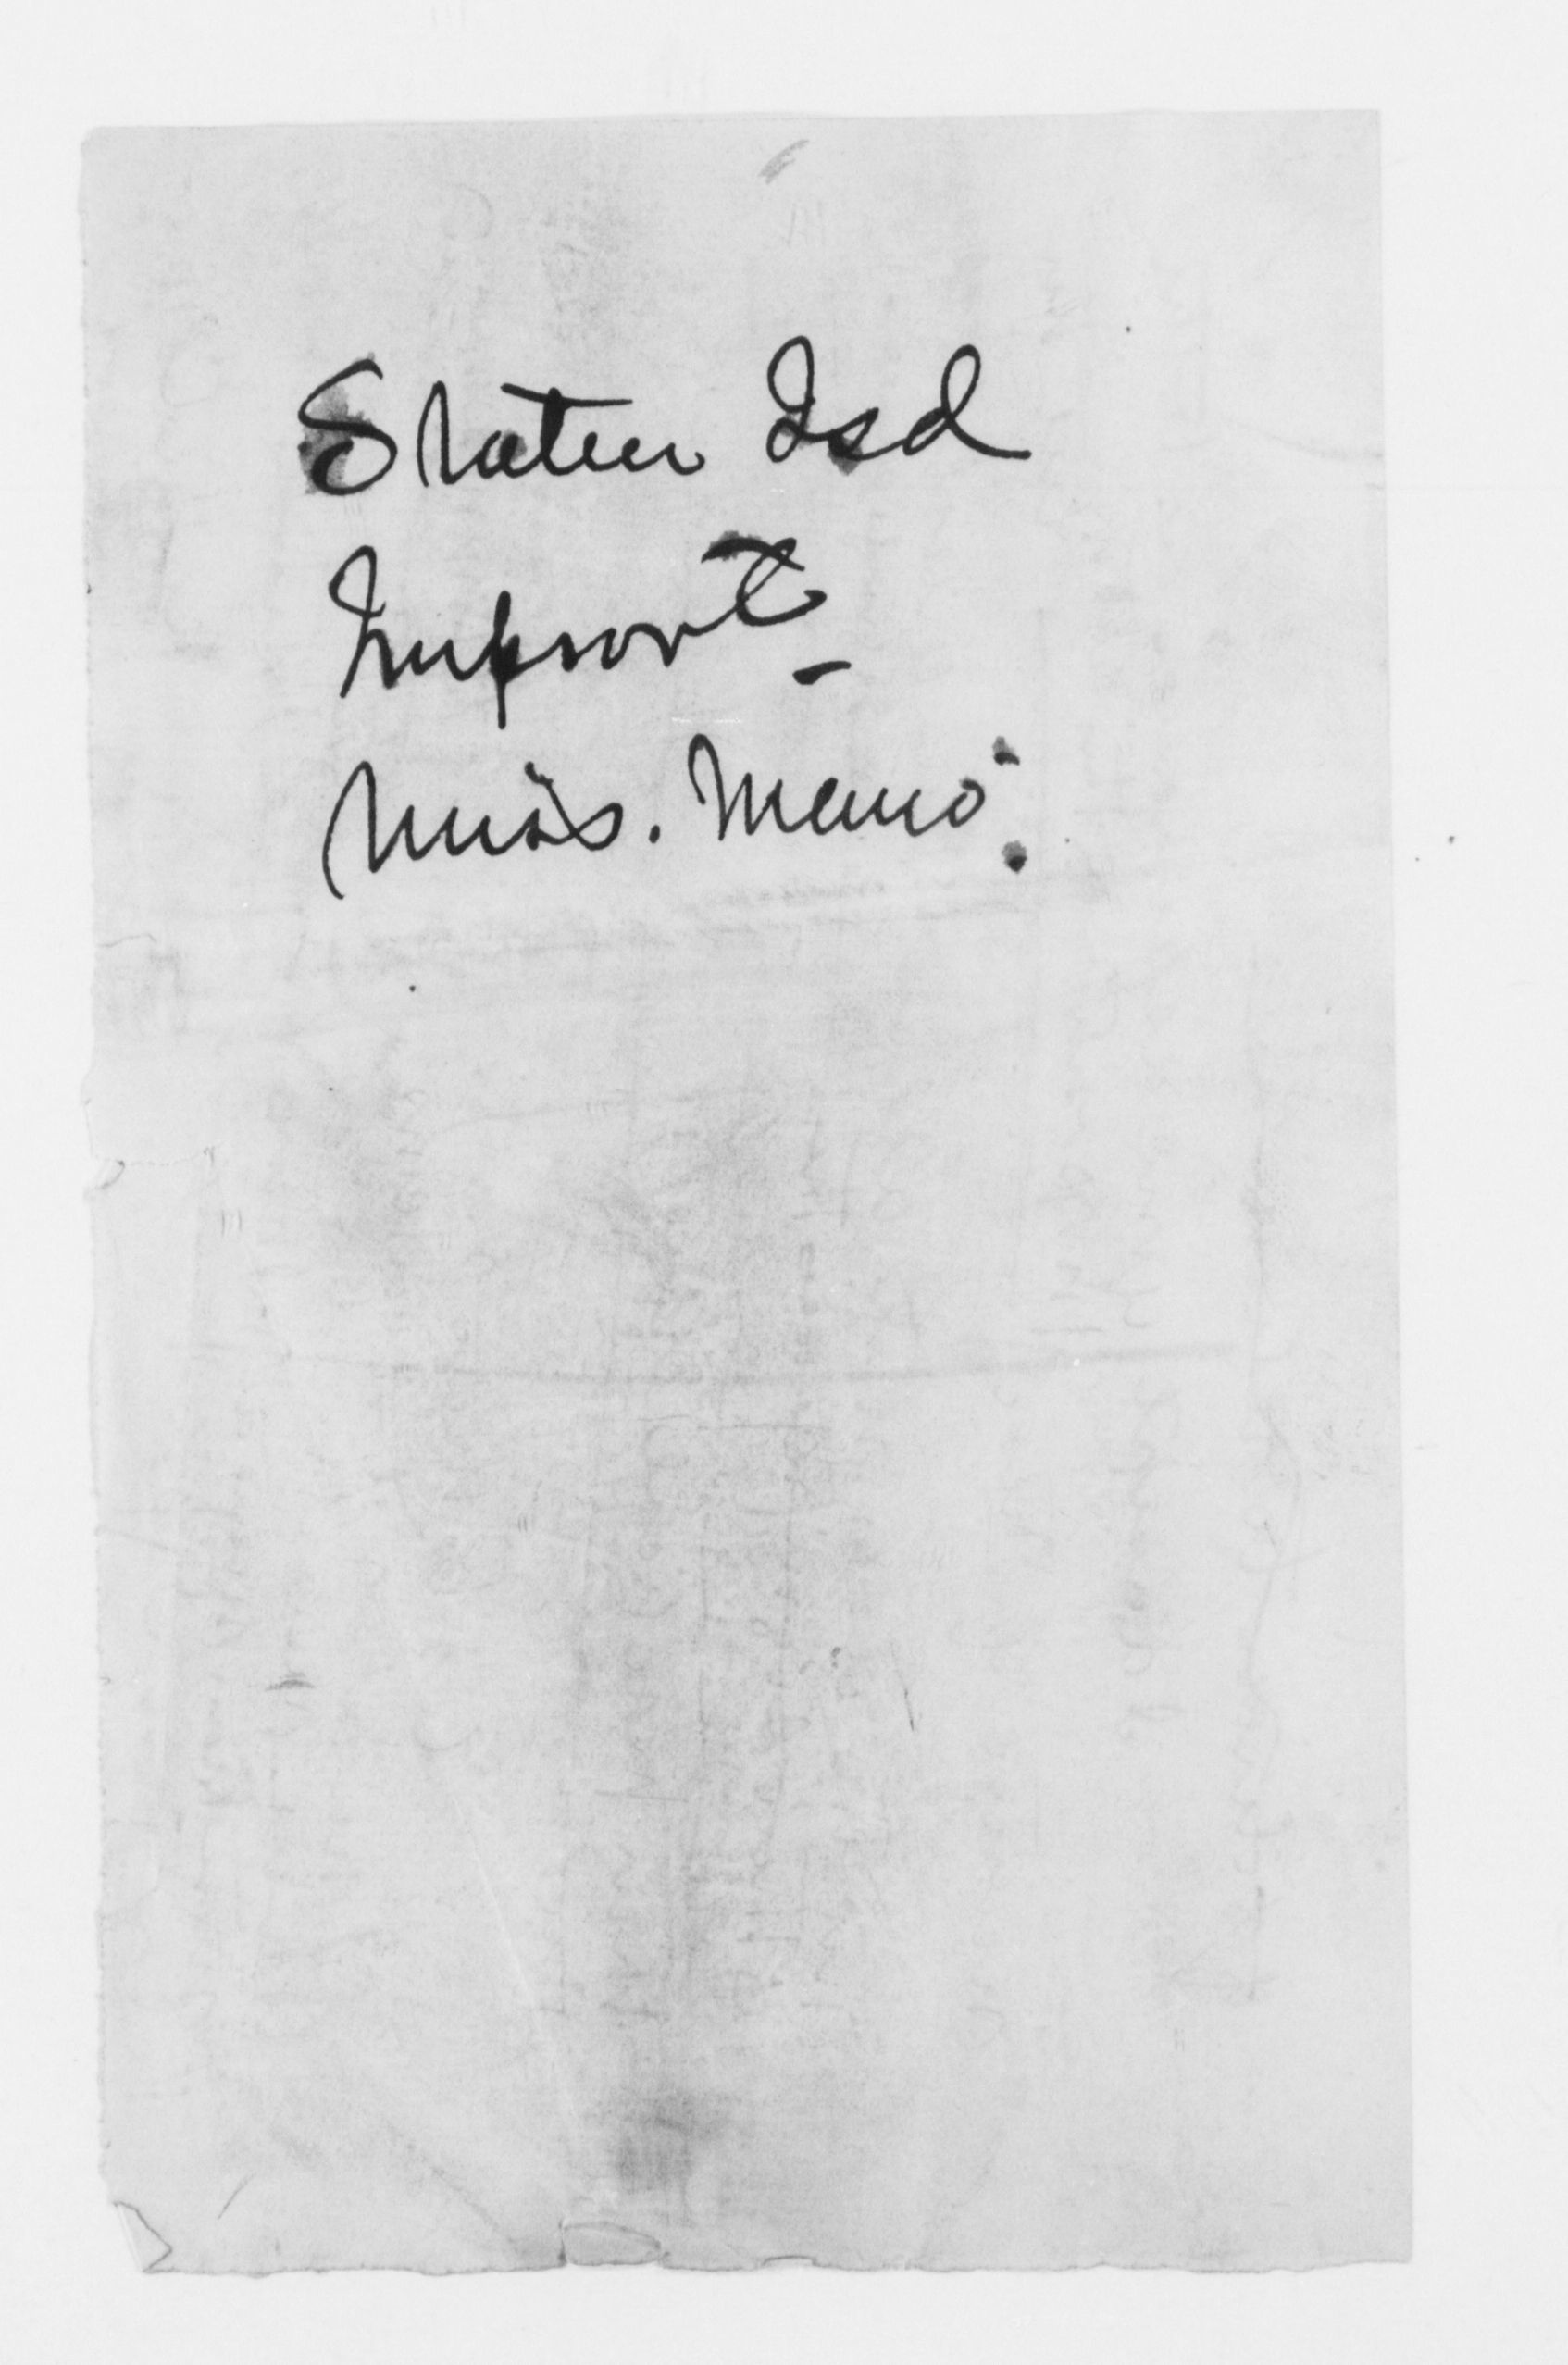 Staten Isd
Improvt-
Miss. Memo: